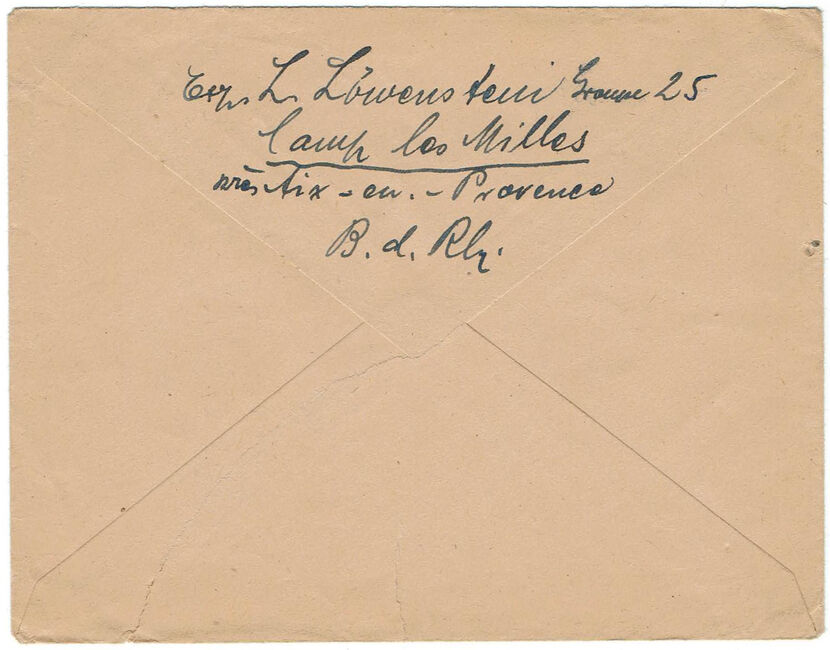 Exp. L. Löwenstein Groupe 25
Camp les Milles
près Aix-en.-Provence
B. d. Rh.